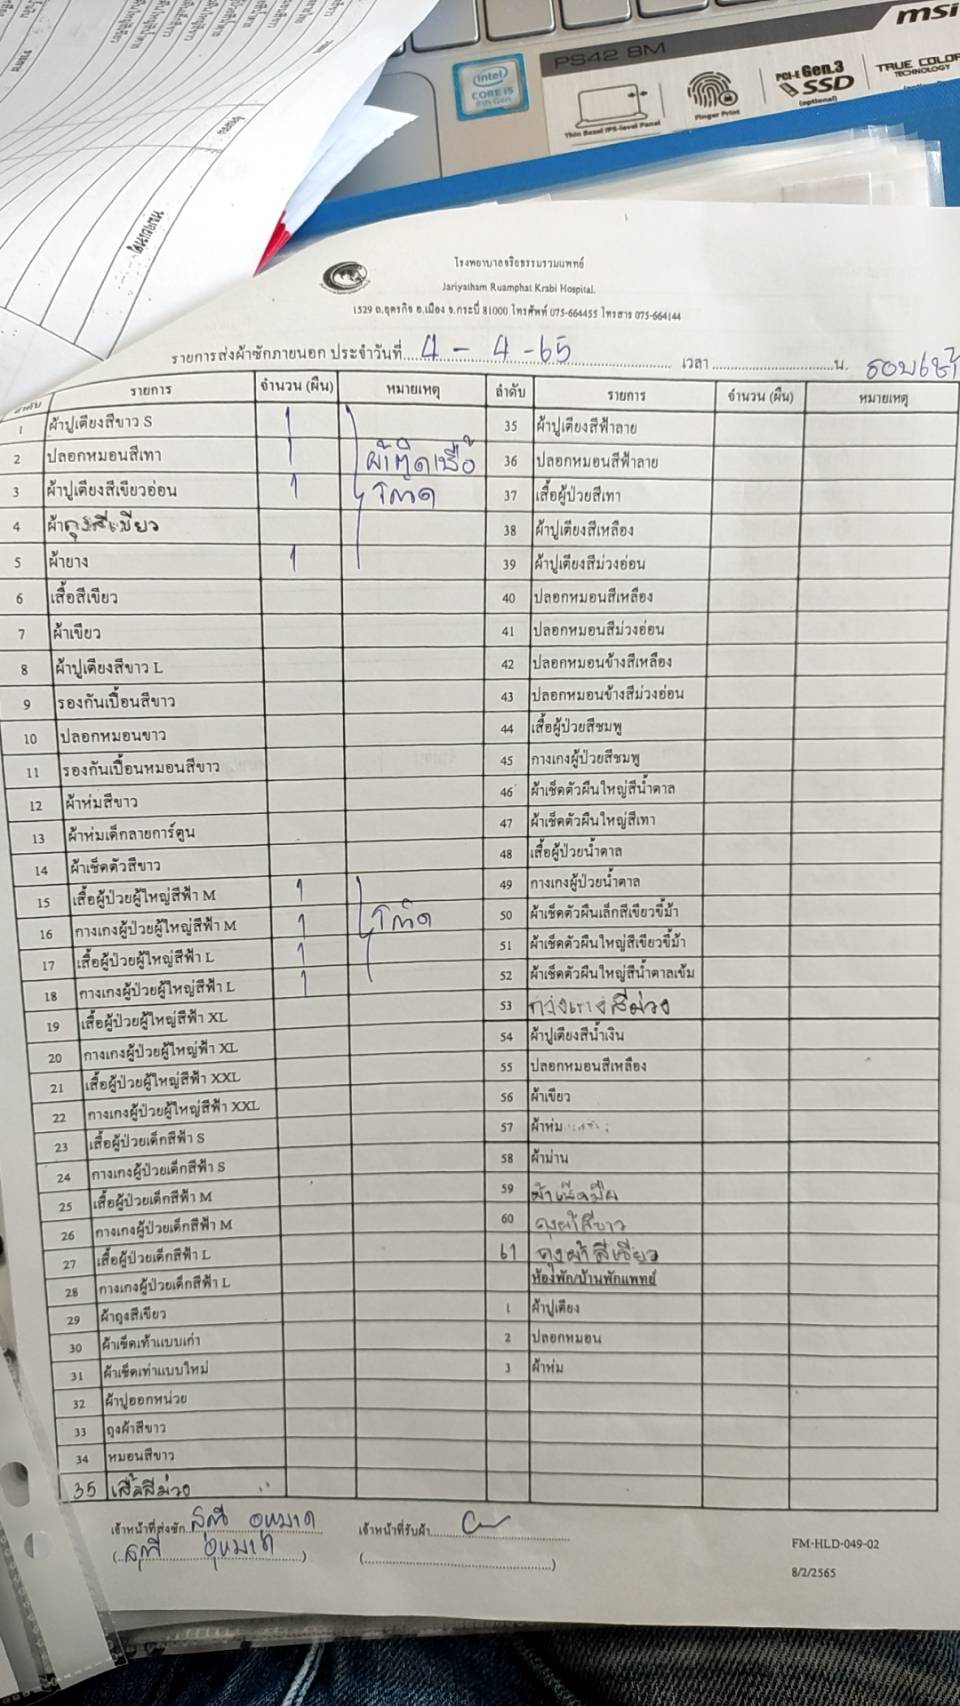 msi
PS42 8M
intel
CORE i5
8th Gen
Thin Bezel IPS-level Panel
Finger Print
PCI-E Gen.3
SSD
(optional)
TRUE COLOR
TECHNOLOGY
หมายเหตุ
โรงพยาบาลจริยธรรมรวมแพทย์
Jariyatham Ruamphat Krabi Hospital.
1529 ถ.อุตรกิจ อ.เมือง จ.กระบี่ 81000 โทรศัพท์ 075-664455 โทรสาร 075-664144
รายการส่งผ้าซักภายนอก ประจำวันที่ 4 - 4 -65 เวลา น. รอบเช้า
ลำดับ รายการ จำนวน (ผืน) หมายเหตุ ลำดับ รายการ จำนวน (ผืน) หมายเหตุ
1 ผ้าปูเตียงสีขาว S 1 35 ผ้าปูเตียงสีฟ้าลาย
2 ปลอกหมอนสีเทา 1 ผ้าติดเชื้อ 36 ปลอกหมอนสีฟ้าลาย
3 ผ้าปูเตียงสีเขียวอ่อน 1 โควิด 37 เสื้อผู้ป่วยสีเทา
4 ผ้าถุงสีเขียว 38 ผ้าปูเตียงสีเหลือง
5 ผ้ายาง 1 39 ผ้าปูเตียงสีม่วงอ่อน
6 เสื้อสีเขียว 40 ปลอกหมอนสีเหลือง
7 ผ้าเขียว 41 ปลอกหมอนสีม่วงอ่อน
8 ผ้าปูเตียงสีขาว L 42 ปลอกหมอนข้างสีเหลือง
9 รองกันเปื้อนสีขาว 43 ปลอกหมอนข้างสีม่วงอ่อน
10 ปลอกหมอนขาว 44 เสื้อผู้ป่วยสีชมพู
11 รองกันเปื้อนหมอนสีขาว 45 กางเกงผู้ป่วยสีชมพู
12 ผ้าห่มสีขาว 46 ผ้าเช็ดตัวผืนใหญ่สีน้ำตาล
13 ผ้าห่มเด็กลายการ์ตูน 47 ผ้าเช็ดตัวผืนใหญ่สีเทา
14 ผ้าเช็ดตัวสีขาว 48 เสื้อผู้ป่วยน้ำตาล
15 เสื้อผู้ป่วยผู้ใหญ่สีฟ้า M 1 49 กางเกงผู้ป่วยน้ำตาล
16 กางเกงผู้ป่วยผู้ใหญ่สีฟ้า M 1 โควิด 50 ผ้าเช็ดตัวผืนเล็กสีเขียวขี้ม้า
17 เสื้อผู้ป่วยผู้ใหญ่สีฟ้า L 1 51 ผ้าเช็ดตัวผืนใหญ่สีเขียวขี้ม้า
18 กางเกงผู้ป่วยผู้ใหญ่สีฟ้า L 1 52 ผ้าเช็ดตัวผืนใหญ่สีน้ำตาลเข้ม
19 เสื้อผู้ป่วยผู้ใหญ่สีฟ้า XL 53 กางเกงสีม่วง
20 กางเกงผู้ป่วยผู้ใหญ่ฟ้า XL 54 ผ้าปูเตียงสีน้ำเงิน
21 เสื้อผู้ป่วยผู้ใหญ่สีฟ้า XXL 55 ปลอกหมอนสีเหลือง
22 กางเกงผู้ป่วยผู้ใหญ่สีฟ้า XXL 56 ผ้าเขียว
23 เสื้อผู้ป่วยเด็กสีฟ้า S 57 ผ้าห่ม
24 กางเกงผู้ป่วยเด็กสีฟ้า S 58 ผ้าม่าน
25 เสื้อผู้ป่วยเด็กสีฟ้า M 59 ผ้าเช็ดมือ
26 กางเกงผู้ป่วยเด็กสีฟ้า M 60 ถุงผ้าสีขาว
27 เสื้อผู้ป่วยเด็กสีฟ้า L 61 ถุงผ้าสีเขียว
28 กางเกงผู้ป่วยเด็กสีฟ้า L ห้องพัก/บ้านพักแพทย์
29 ผ้าถุงสีเขียว 1 ผ้าปูเตียง
30 ผ้าเช็ดเท้าแบบเก่า 2 ปลอกหมอน
31 ผ้าเช็ดเท่าแบบใหม่ 3 ผ้าห่ม
32 ผ้าปูออกหน่วย
33 ถุงผ้าสีขาว
34 หมอนสีขาว
35 เสื้อสีม่วง
เจ้าหน้าที่ส่งซัก เจ้าหน้าที่รับผ้า
FM-HLD-049-02
8/2/2565